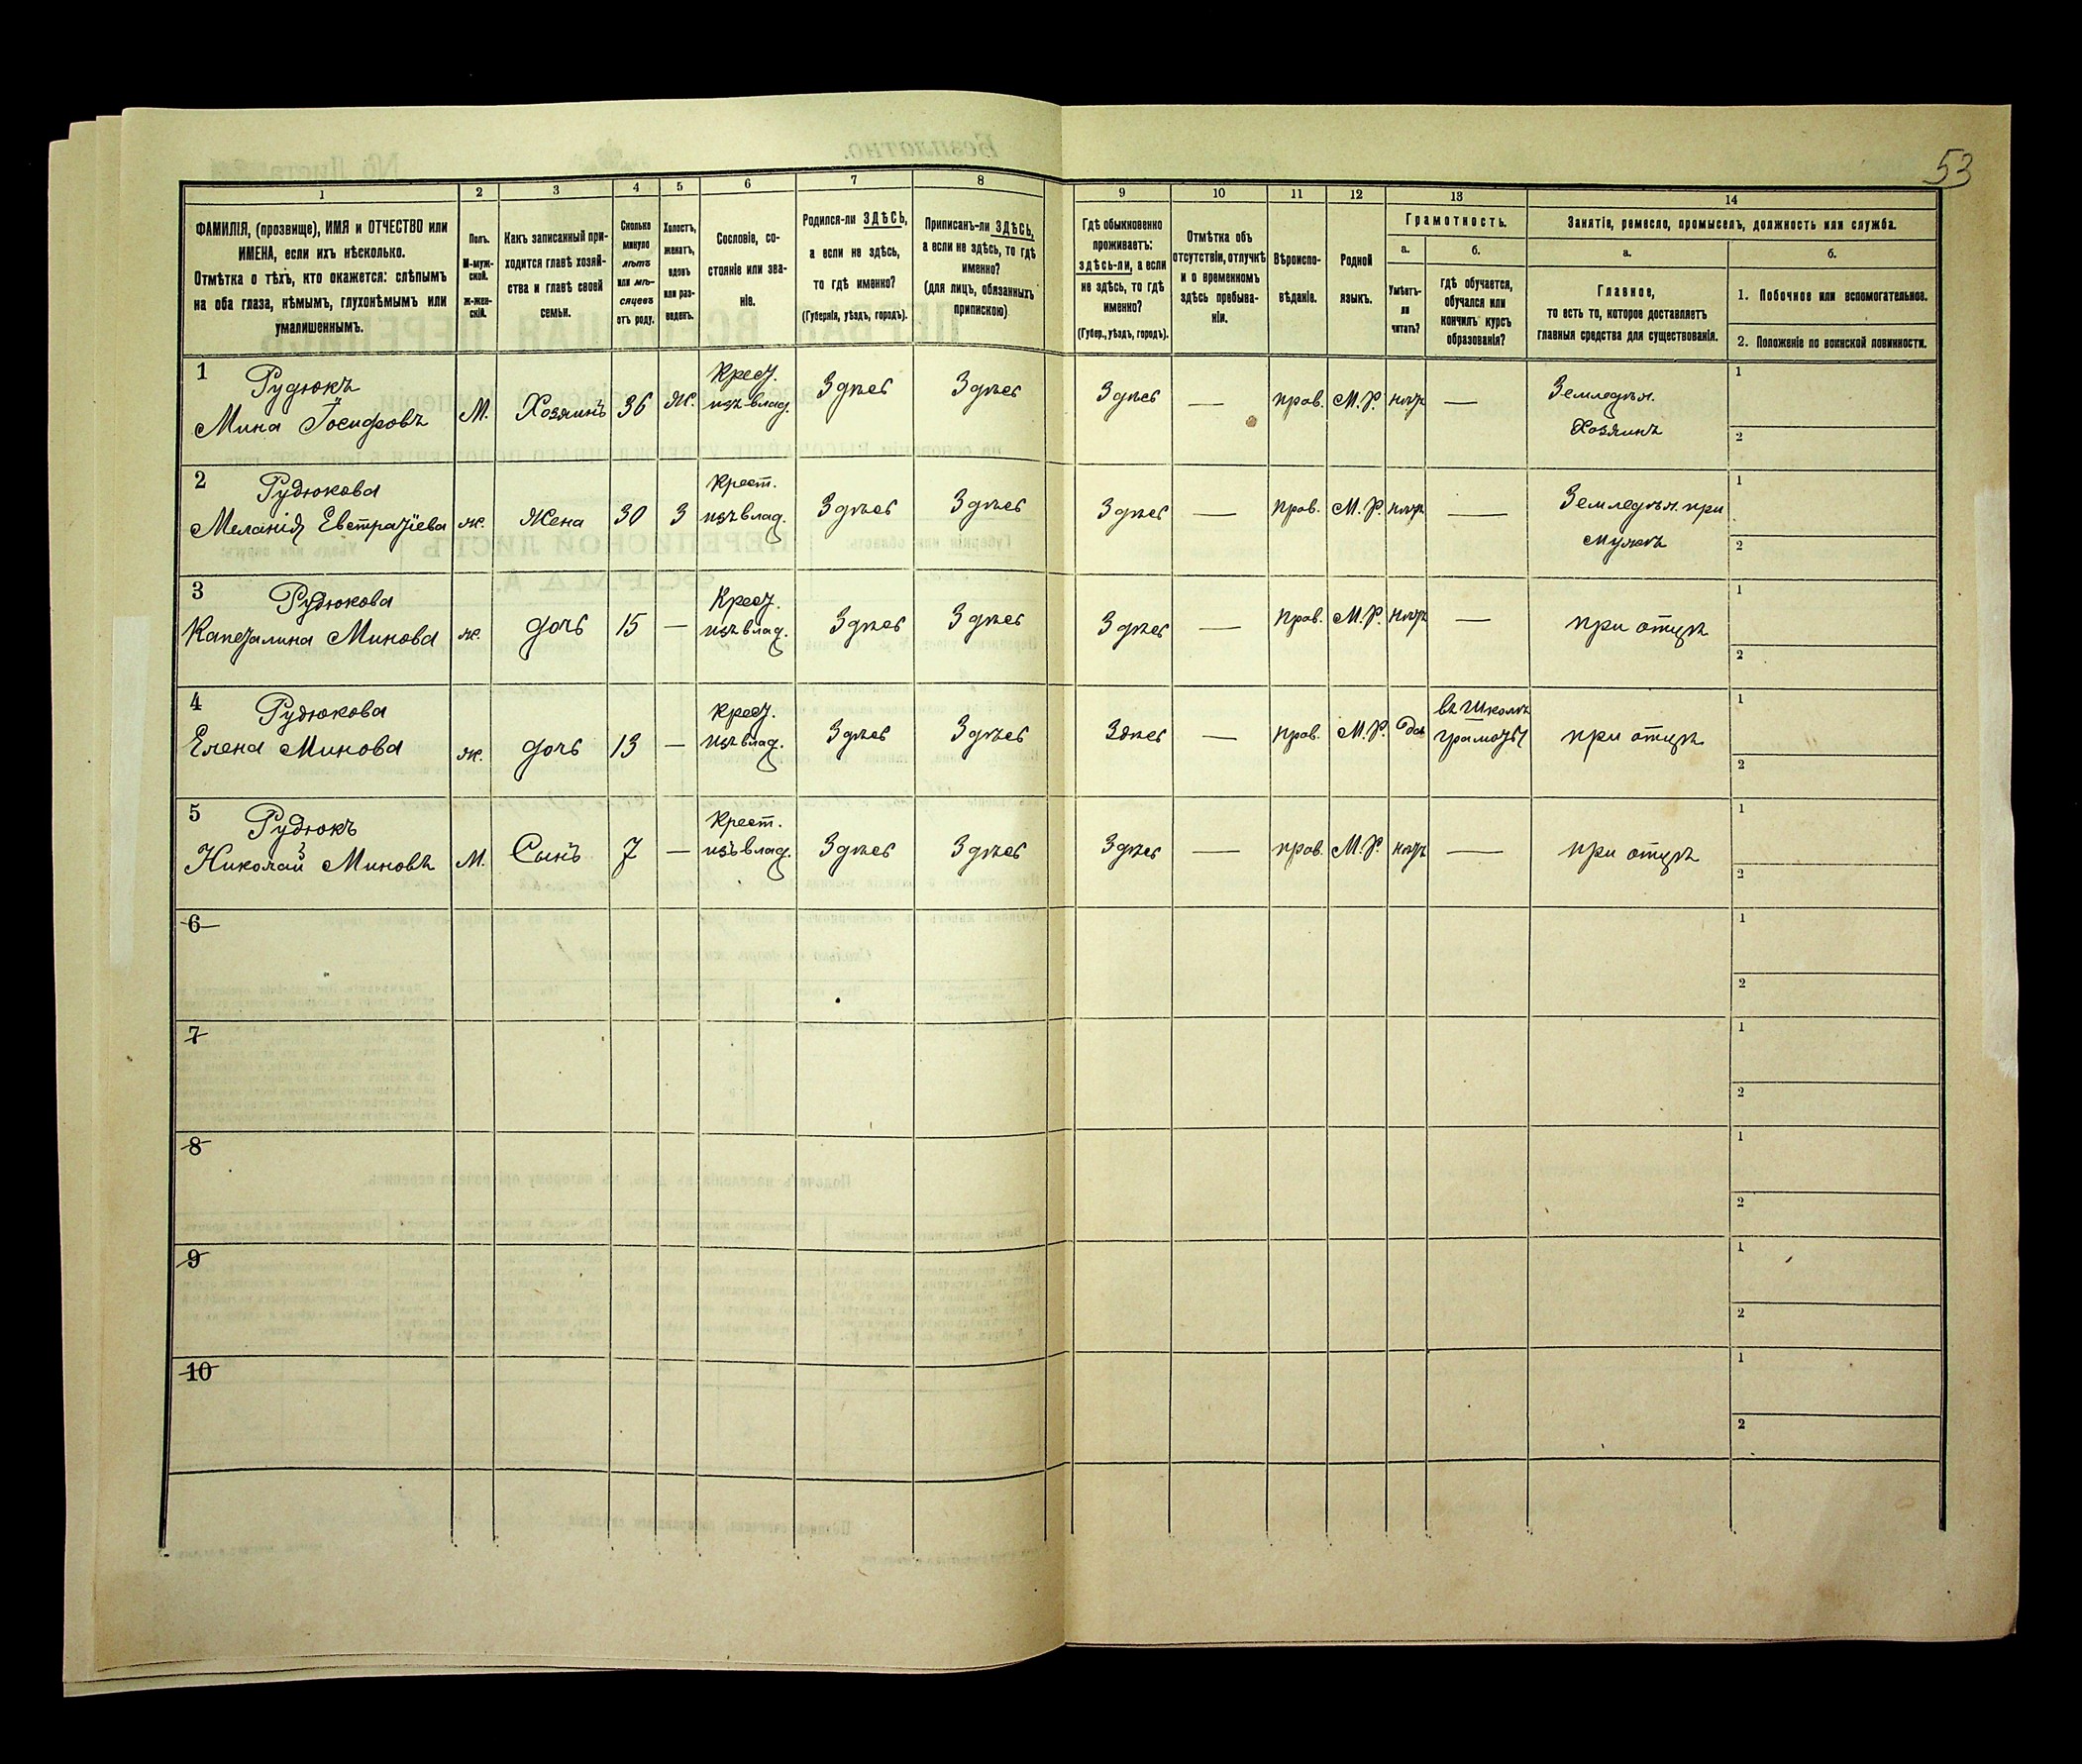 53
1 2 3 4 5 6 7 8 9 10 11 12 13 14
ФАМИЛІЯ, (прозвище), ИМЯ и ОТЧЕСТВО или
ИМЕНА, если ихъ нѣсколько.
Отмѣтка о тѣхъ, кто окажется: слѣпымъ
на оба глаза, нѣмымъ, глухонѣмымъ или
умалишеннымъ.
Полъ.
М-муж-
ской.
Ж-жен-
скій.
Какъ записанный при-
ходится главѣ хозяй-
ства и главѣ своей
семьи.
Сколько
минуло
лѣтъ
или мѣ-
сяцевъ
отъ роду.
Холостъ,
женатъ,
вдовъ
или раз-
веденъ.
Сословіе, со-
стояніе или зва-
ніе.
Родился-ли ЗДѢСЬ,
а если не здѣсь,
то гдѣ именно?
(Губернія, уѣздъ, городъ).
Приписанъ-ли ЗДѢСЬ,
а если не здѣсь, то гдѣ
именно?
(для лицъ, обязанныхъ
припискою)
Гдѣ обыкновенно
проживаетъ:
здѣсь-ли, а если
не здѣсь, то гдѣ
именно?
(Губер., уѣздъ, городъ).
Отмѣтка объ
отсутствіи, отлучкѣ
и о временномъ
здѣсь пребыва-
ніи.
Вѣроиспо-
вѣданіе.
Родной
языкъ.
Грамотность.
а. б.
Умѣетъ-
ли
читать?
гдѣ обучается,
обучался или
кончилъ курсъ
образованія?
Занятіе, ремесло, промыселъ, должность или служба.
а. б.
Главное,
то есть то, которое доставляетъ
главныя средства для существованія.
1. Побочное или вспомогательное.
2. Положеніе по воинской повинности.
1 Рудюкъ Крест. 1
Мина Іосифовъ М. Хозяинъ 36 Ж. изъ влад. Здѣсь Здѣсь Здѣсь — прав. М.Р. нѣтъ — Земледѣл.
Хозяинъ 2
2 Рудюкова Крест. 1
Меланія Евстратіева ж. Жена 30 З изъ влад. Здѣсь Здѣсь Здѣсь — прав. М.Р. нѣтъ — Земледѣл. при
мужѣ 2
3 Рудюкова Крест. 1
Капеталина Минова ж. дочь 15 — изъ влад. Здѣсь Здѣсь Здѣсь — прав. М.Р. нѣтъ — при отцѣ
2
4 Рудюкова Крест. въ Школѣ 1
Елена Минова ж. дочь 13 — изъ влад. Здѣсь Здѣсь Здѣсь — прав. М.Р. да грамоты при отцѣ
2
5 Рудюкъ Крест. 1
Николай Миновъ М. Сынъ 7 — изъ влад. Здѣсь Здѣсь Здѣсь — прав. М.Р. нѣтъ — при отцѣ
2
6 1
2
7 1
2
8 1
2
9 1
2
10 1
2